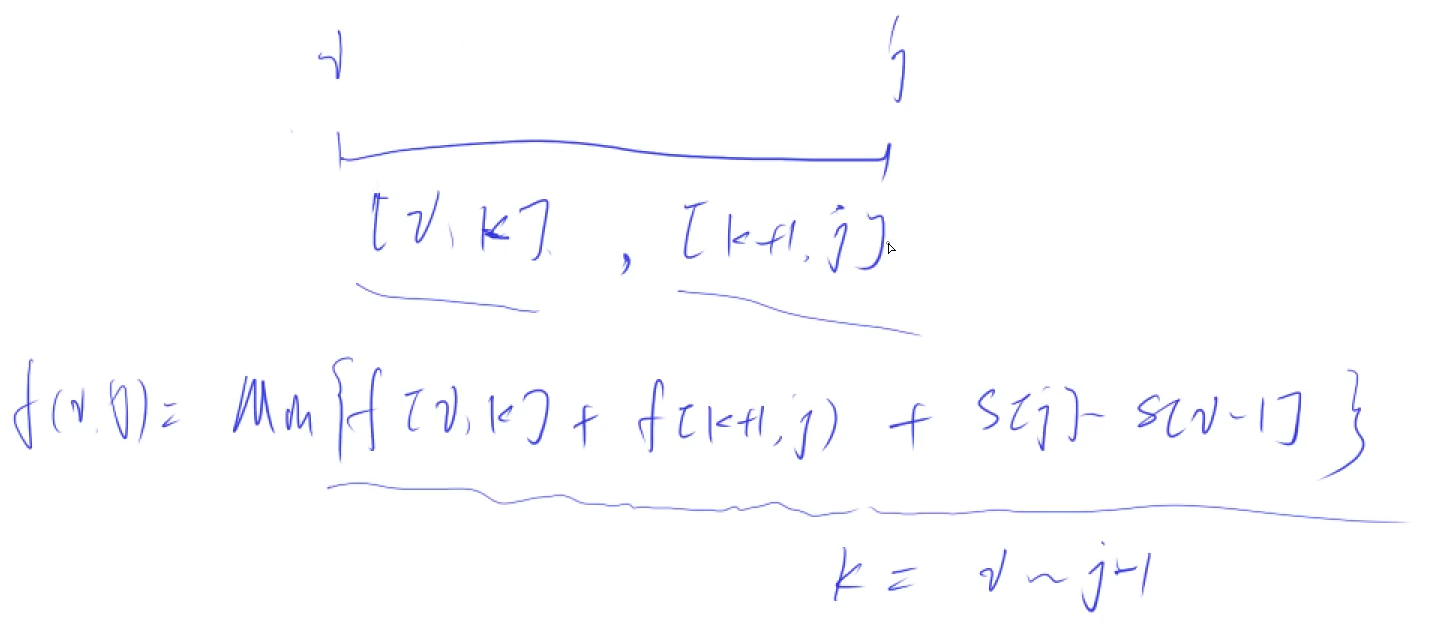 i j
[i, k] , [k+1, j]
f(i, j) = Min{f[i, k] + f[k+1, j) + S[j] - S[i-1]}
k = i ~ j-1